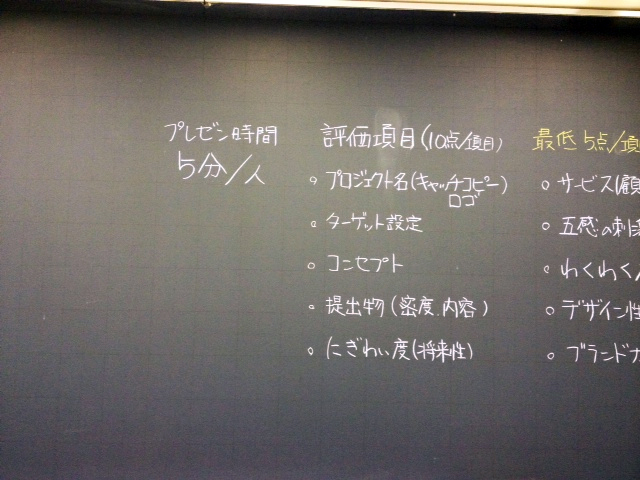 プレゼン時間
5分/人
評価項目(10点/項目)
。プロジェクト名(キャッチコピー)
ロゴ
。ターゲット設定
。コンセプト
。提出物(密度.内容)
。にぎわい度(将来性)
最低5点/項
。サービス(顧
。五感の刺
。わくわく
。デザイン性
。ブランド力